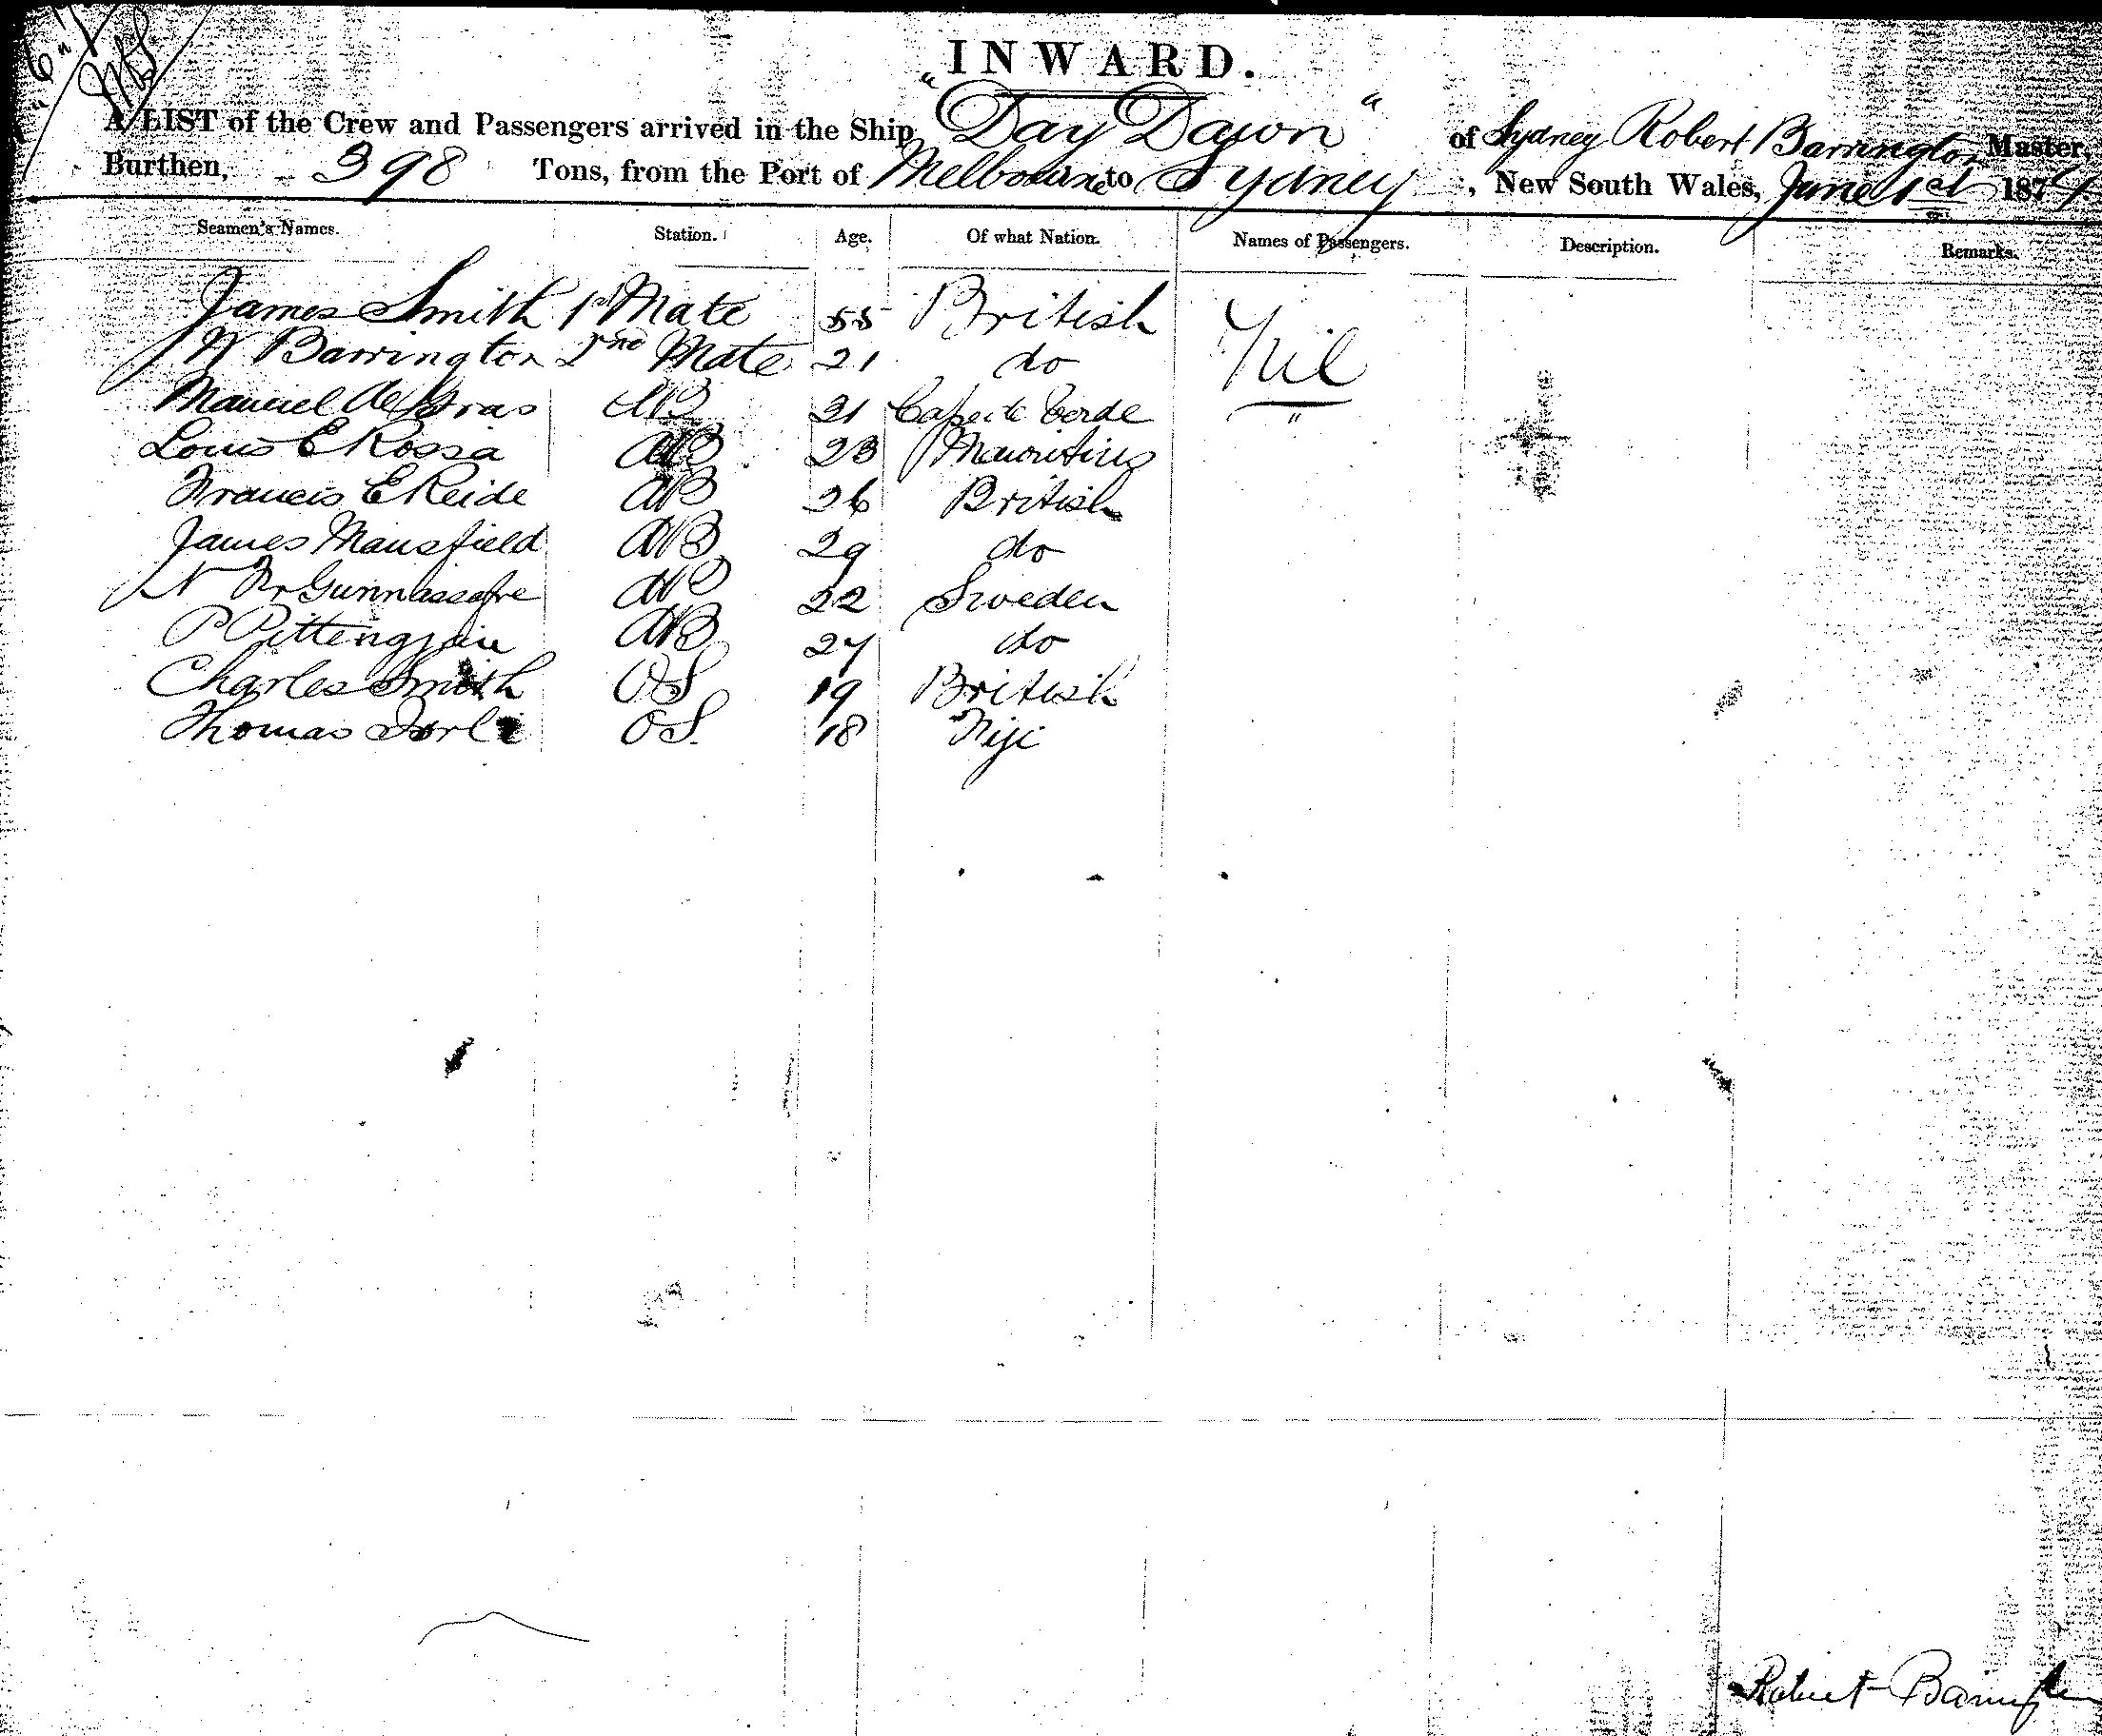 INWARD.
A LIST of the Crew and Passengers arrived in the Ship "Day Dawn" of Sydney Robert Barrington Master,
Burthen, 398 Tons, from the Port of Melbourne to Sydney, New South Wales, June 1st 1874
Seamen's Names. Station. Age. Of what Nation. Names of Passengers. Description. Remarks.
James Smith 1st Mate 55 British Nil
W Barrington 2nd Mate 21 do
Manuel de AB 21 Cape de Verde
Louis E Rossa AB 23 Mauritius
Francis E Reide AB 26 British
James Mansfield AB 29 do
AB 22 Sweden
P AB 27 do
Charles Smith OS 19 British
Thomas OS 18 Fiji
Robert Barrington